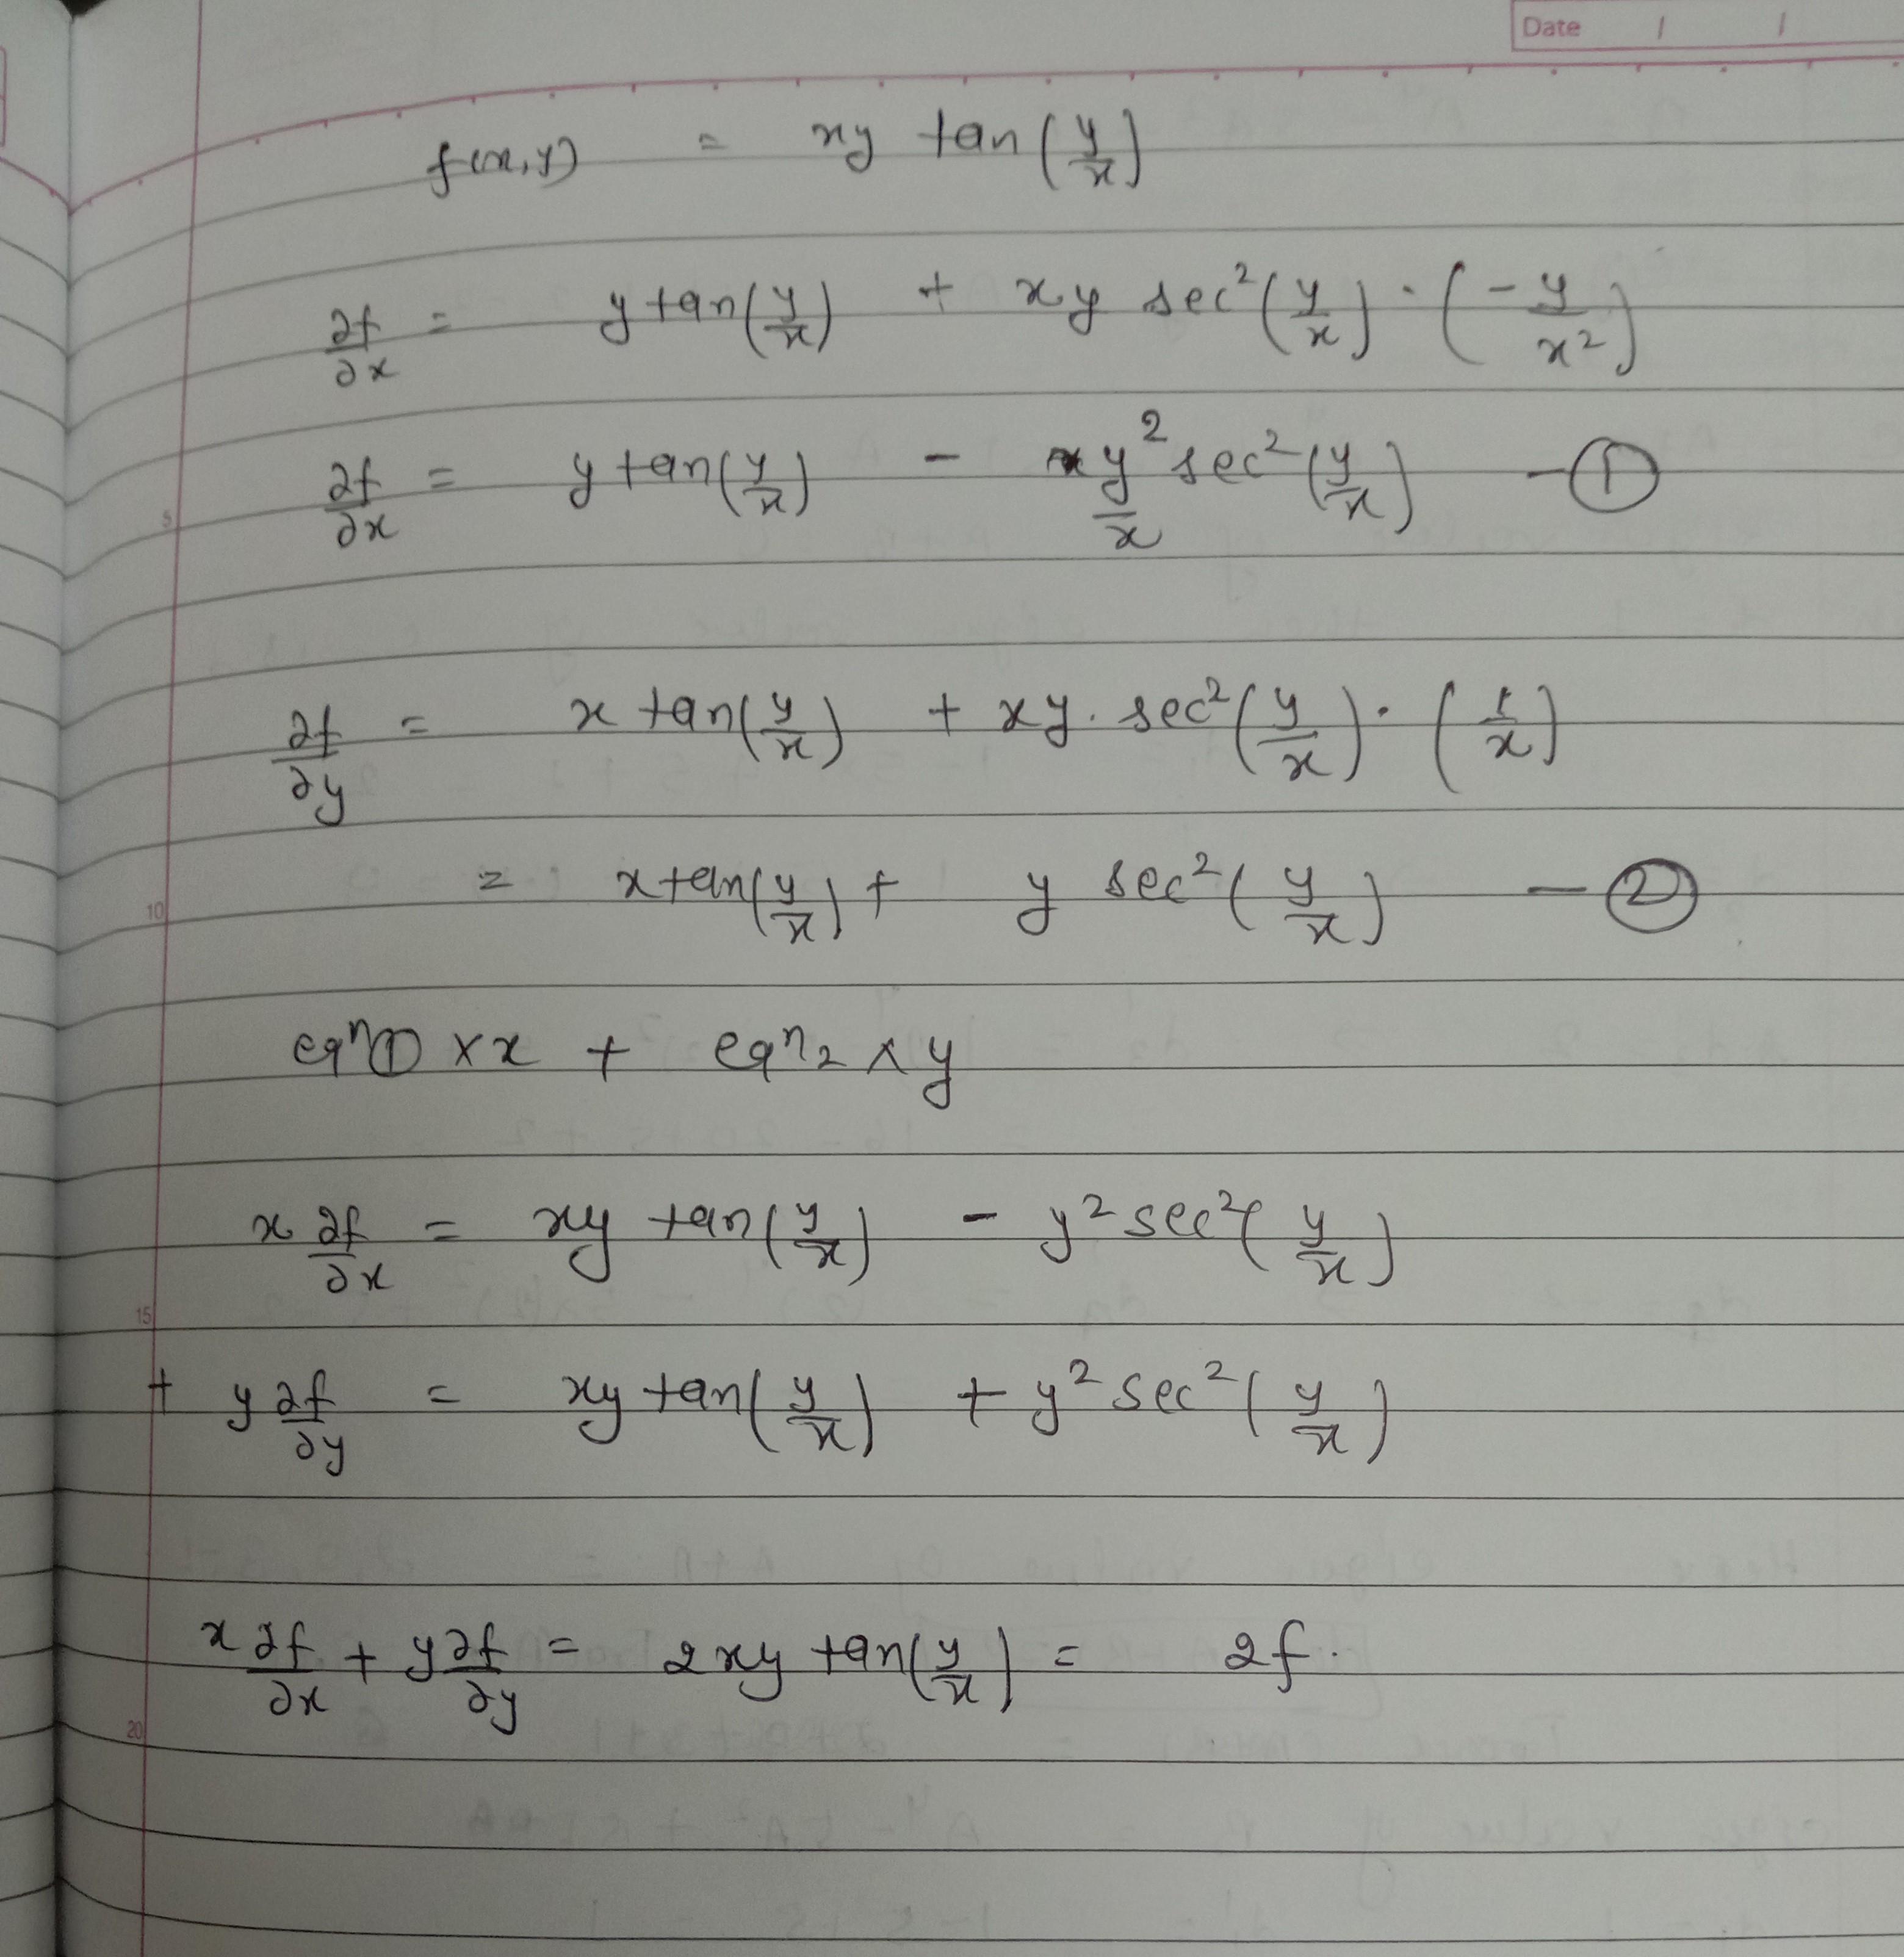 Date / /
f(x,y) = xy tan(y/x)
∂f/∂x = y tan(y/x) + xy sec²(y/x) · (-y/x²)
∂f/∂x = y tan(y/x) - y²/x sec²(y/x) - ①
5
∂f/∂y = x tan(y/x) + xy. sec²(y/x) · (1/x)
= x tan(y/x) + y sec²(y/x) - ②
10
eqⁿ① × x + eqⁿ2 × y
x ∂f/∂x = xy tan(y/x) - y² sec²(y/x)
15
+ y ∂f/∂y = xy tan(y/x) + y² sec²(y/x)
x ∂f/∂x + y ∂f/∂y = 2xy tan(y/x) = 2f.
20